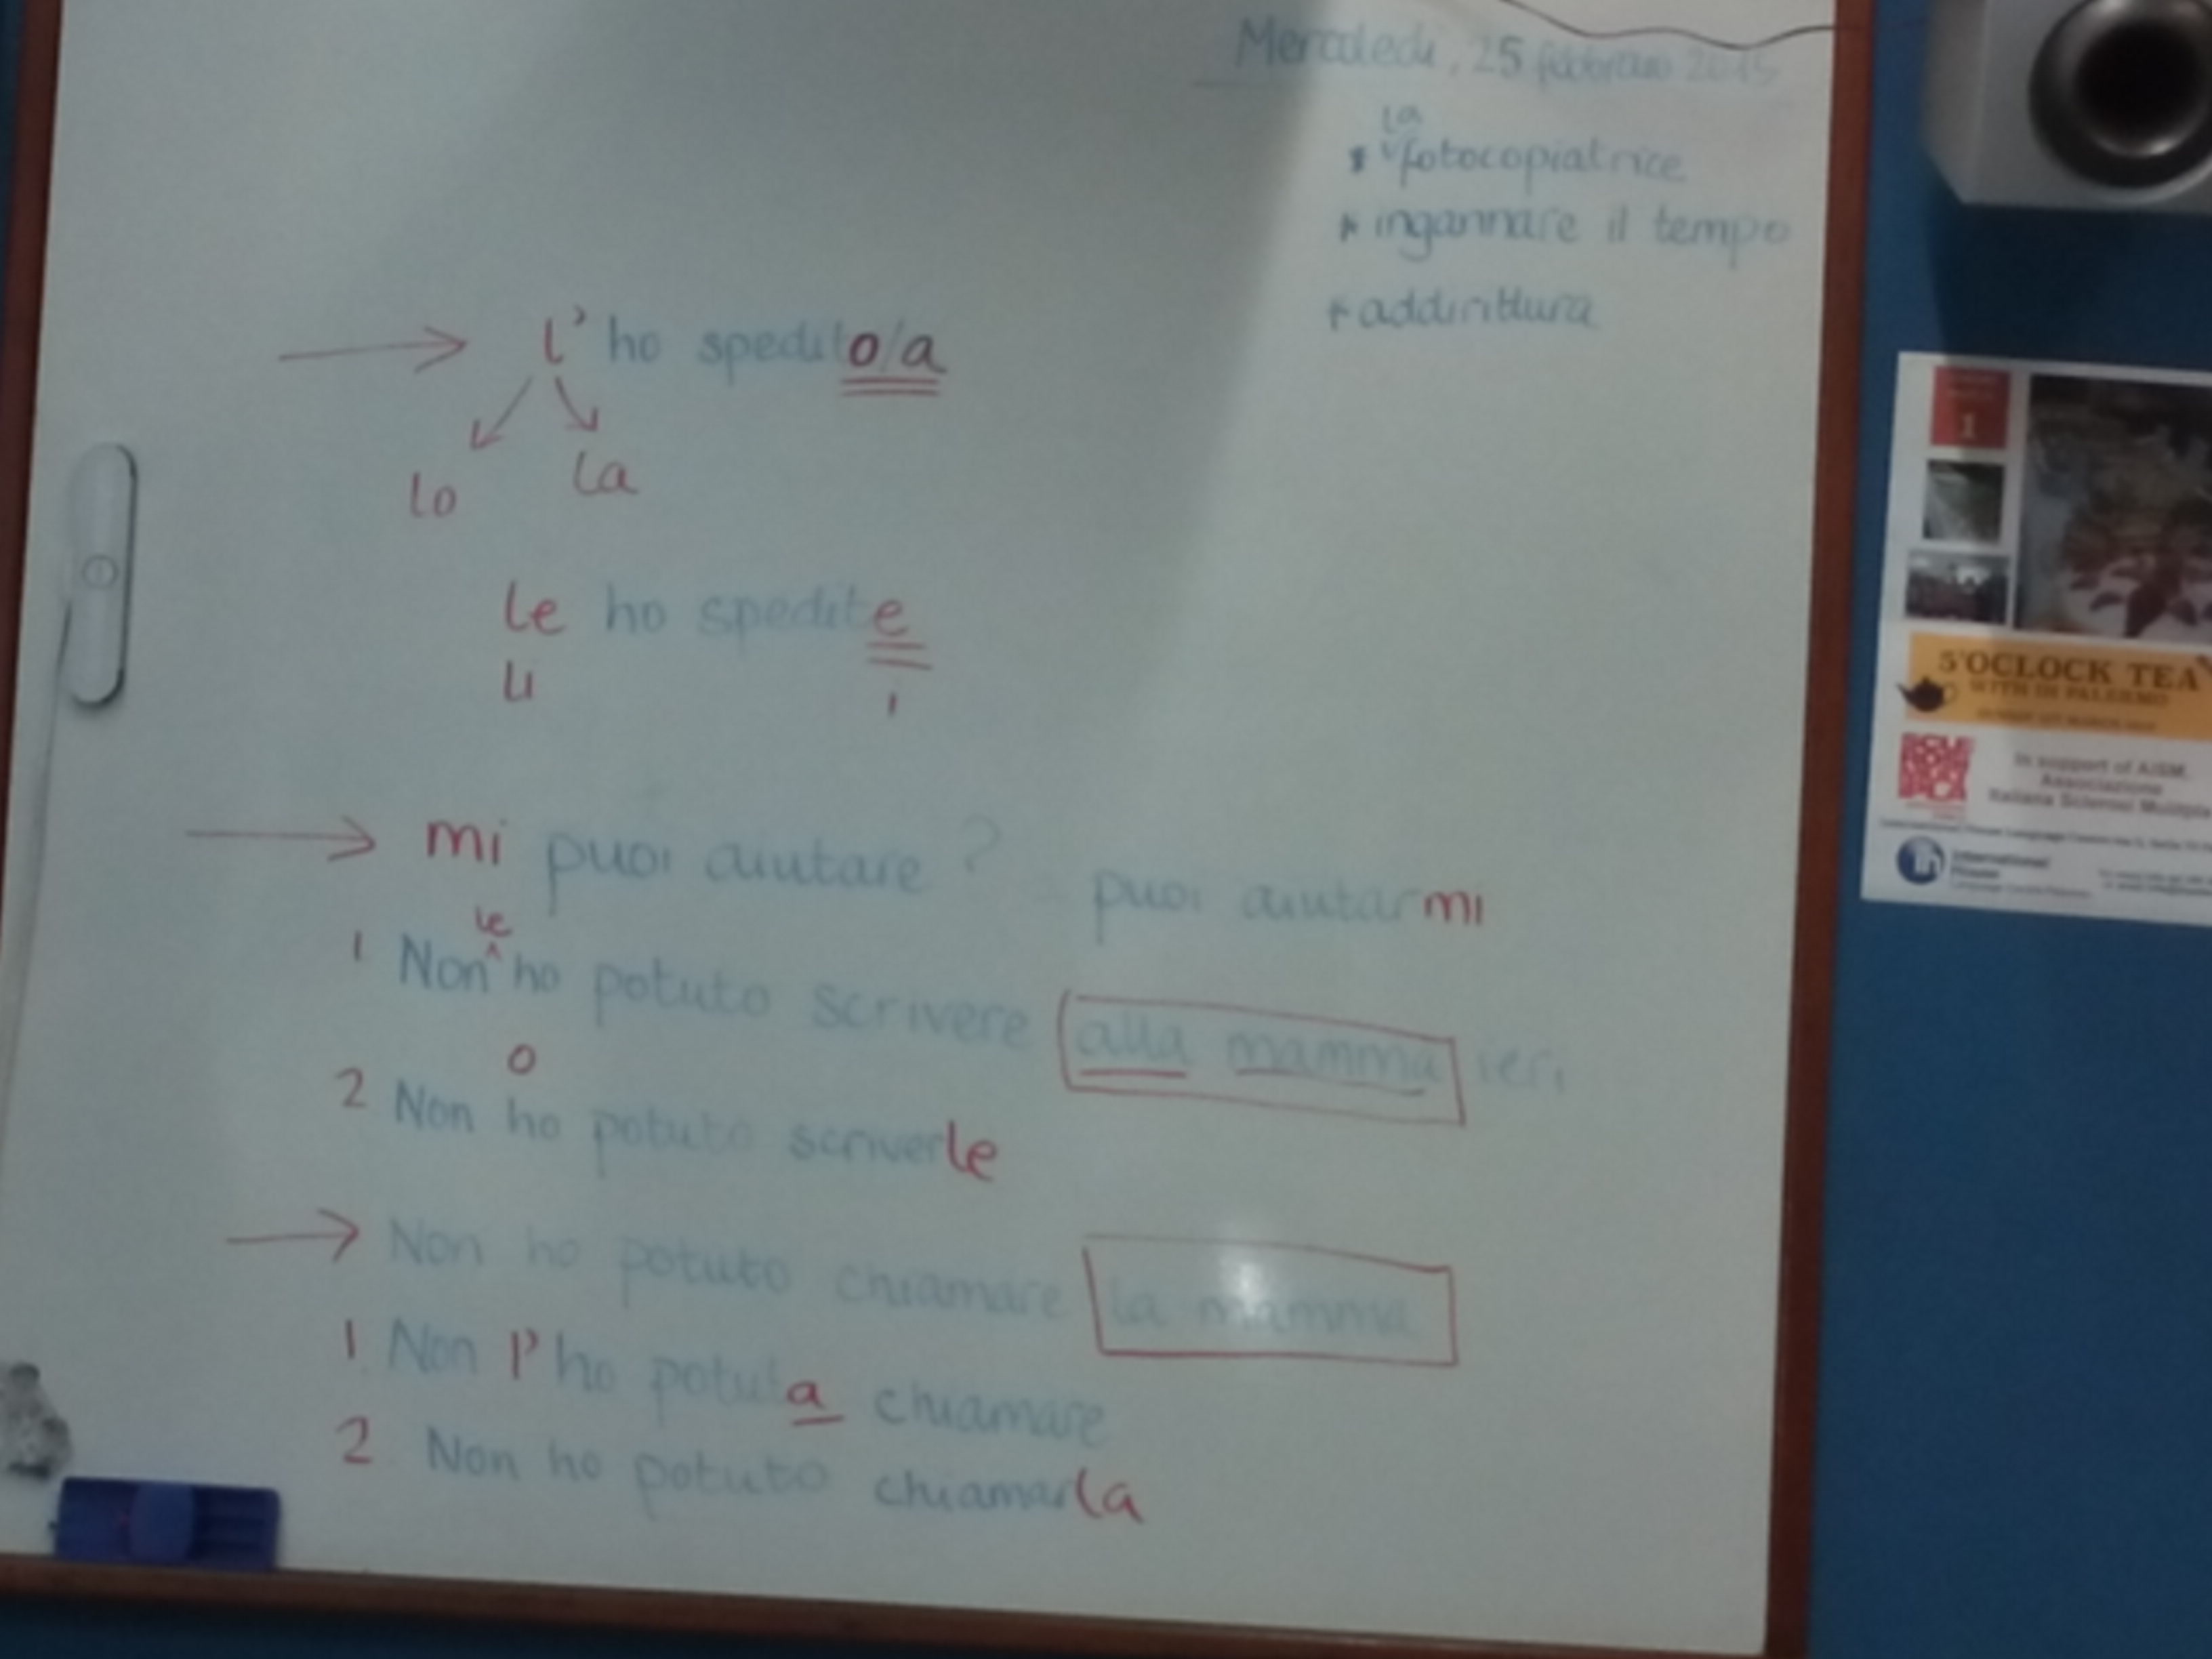 Mercoledì, 25 febbraio 2015
la
* fotocopiatrice
* ingannare il tempo
* addirittura
→ l' ho spedito/a
lo la
le ho spedite
li i
→ mi puoi aiutare ? puoi aiutarmi
le
1 Non ^ ho potuto scrivere alla mamma ieri
o
2 Non ho potuto scriverle
→ Non ho potuto chiamare la mamma
1. Non l' ho potuta chiamare
2. Non ho potuto chiamarla
1
5'OCLOCK TEA
WITH IH PALERMO
In support of AISM,
Associazione
Italiana Sclerosi Multipla
International
House